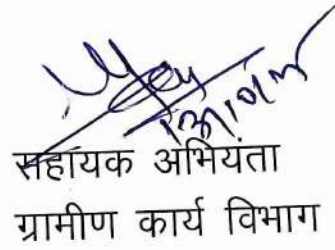 सहायक अभियंता
ग्रामीण कार्य विभाग